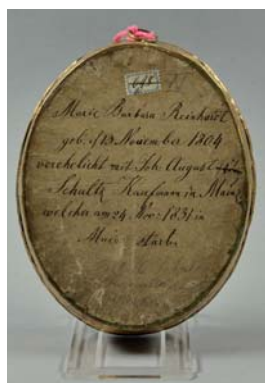 Marie Barbara Reinhardt
geb. 13 November 1804
verehelicht mit Joh. August
Schultz Kaufmann in Mainz
welcher am 24. Nov. 1831 in
starb.